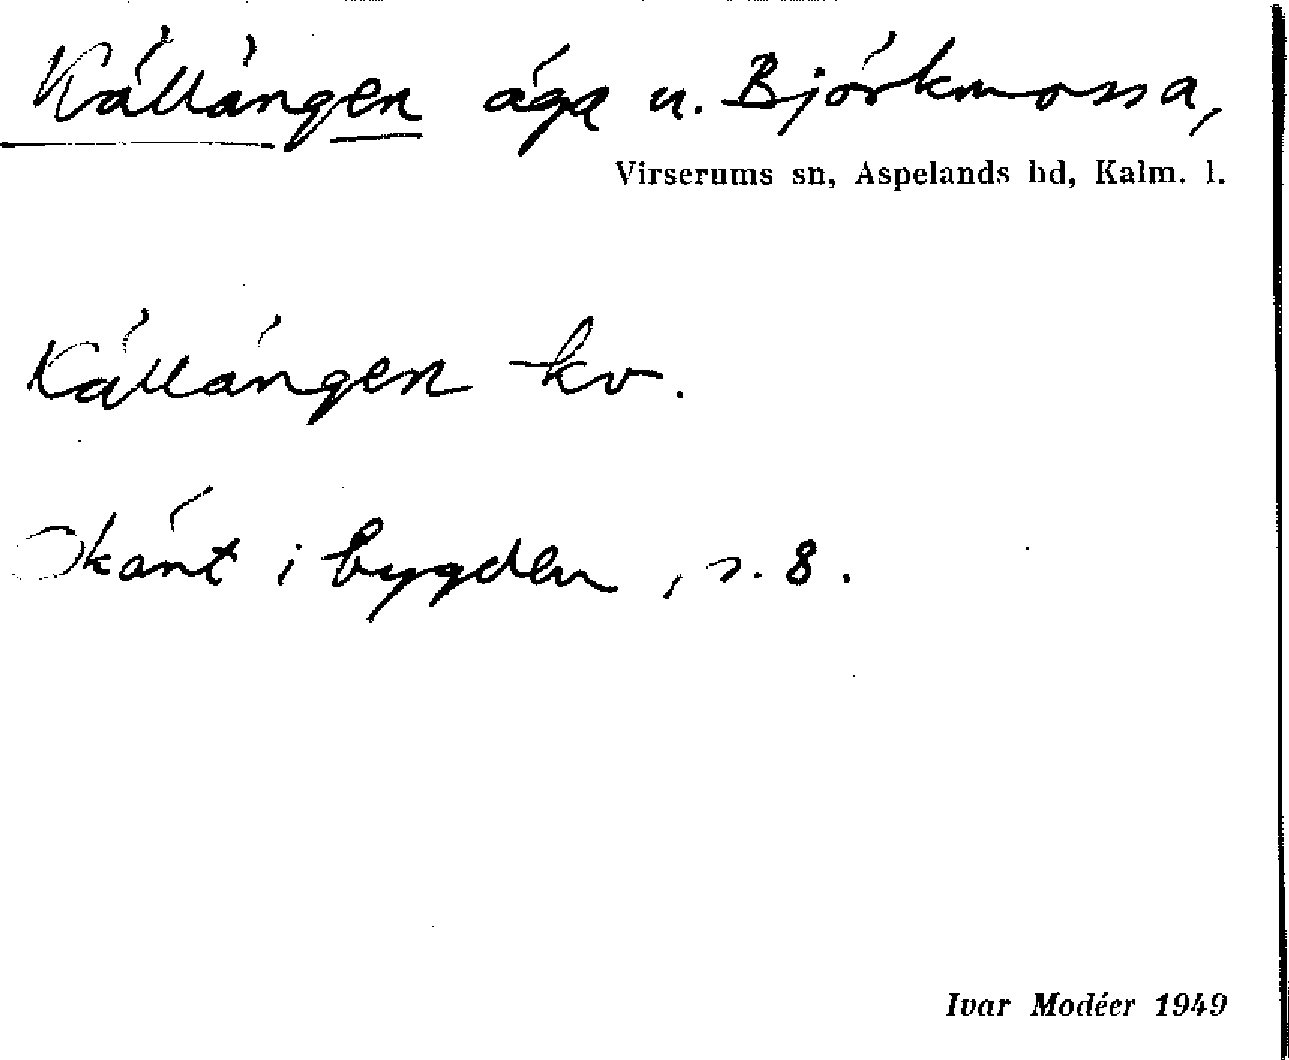 Källängen äga u. Björkmossa,
Virserums sn, Aspelands hd, Kalm. l.
Källängen kv.
Okänt i bygden, s. 8.
Ivar Modéer 1949